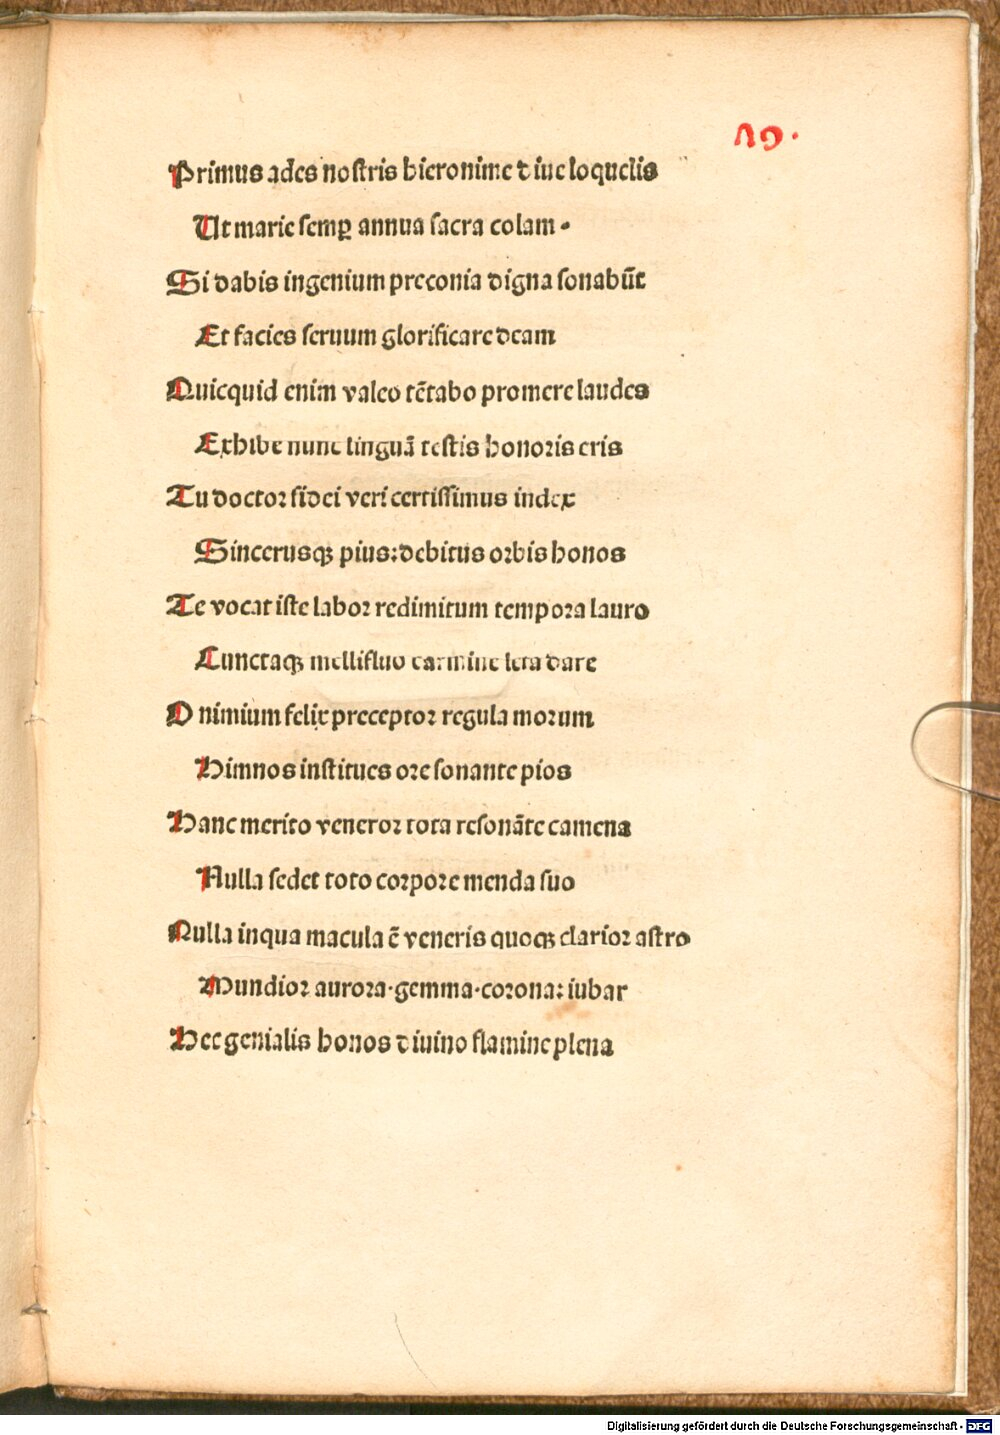 19.
Primus ades nostris hieronime diue loquelis
Ut marie semꝑ annua sacra colam.
Si dabis ingenium preconia digna sonabūt
Et facies seruum glorificare deam
Quicquid enim valeo tētabo promere laudes
Exhibe nunc linguā testis honoris eris
Tu doctor fidei veri certissimus index
Sincerusqꝫ pius:debitus orbis honos
Te vocat iste labor redimitum tempora lauro
Cunctaqꝫ mellifluo carmine leta dare
O nimium felix preceptor regula morum
Himnos institues ore sonante pios
Hanc merito veneror tota resonāte camena
Nulla sedet toto corpore menda suo
Nulla inqua macula ē veneris quoqꝫ clarior astro
Mundior aurora·gemma·corona: iubar
Hec genialis honos diuino flamine plena
Digitalisierung gefördert durch die Deutsche Forschungsgemeinschaft - DFG